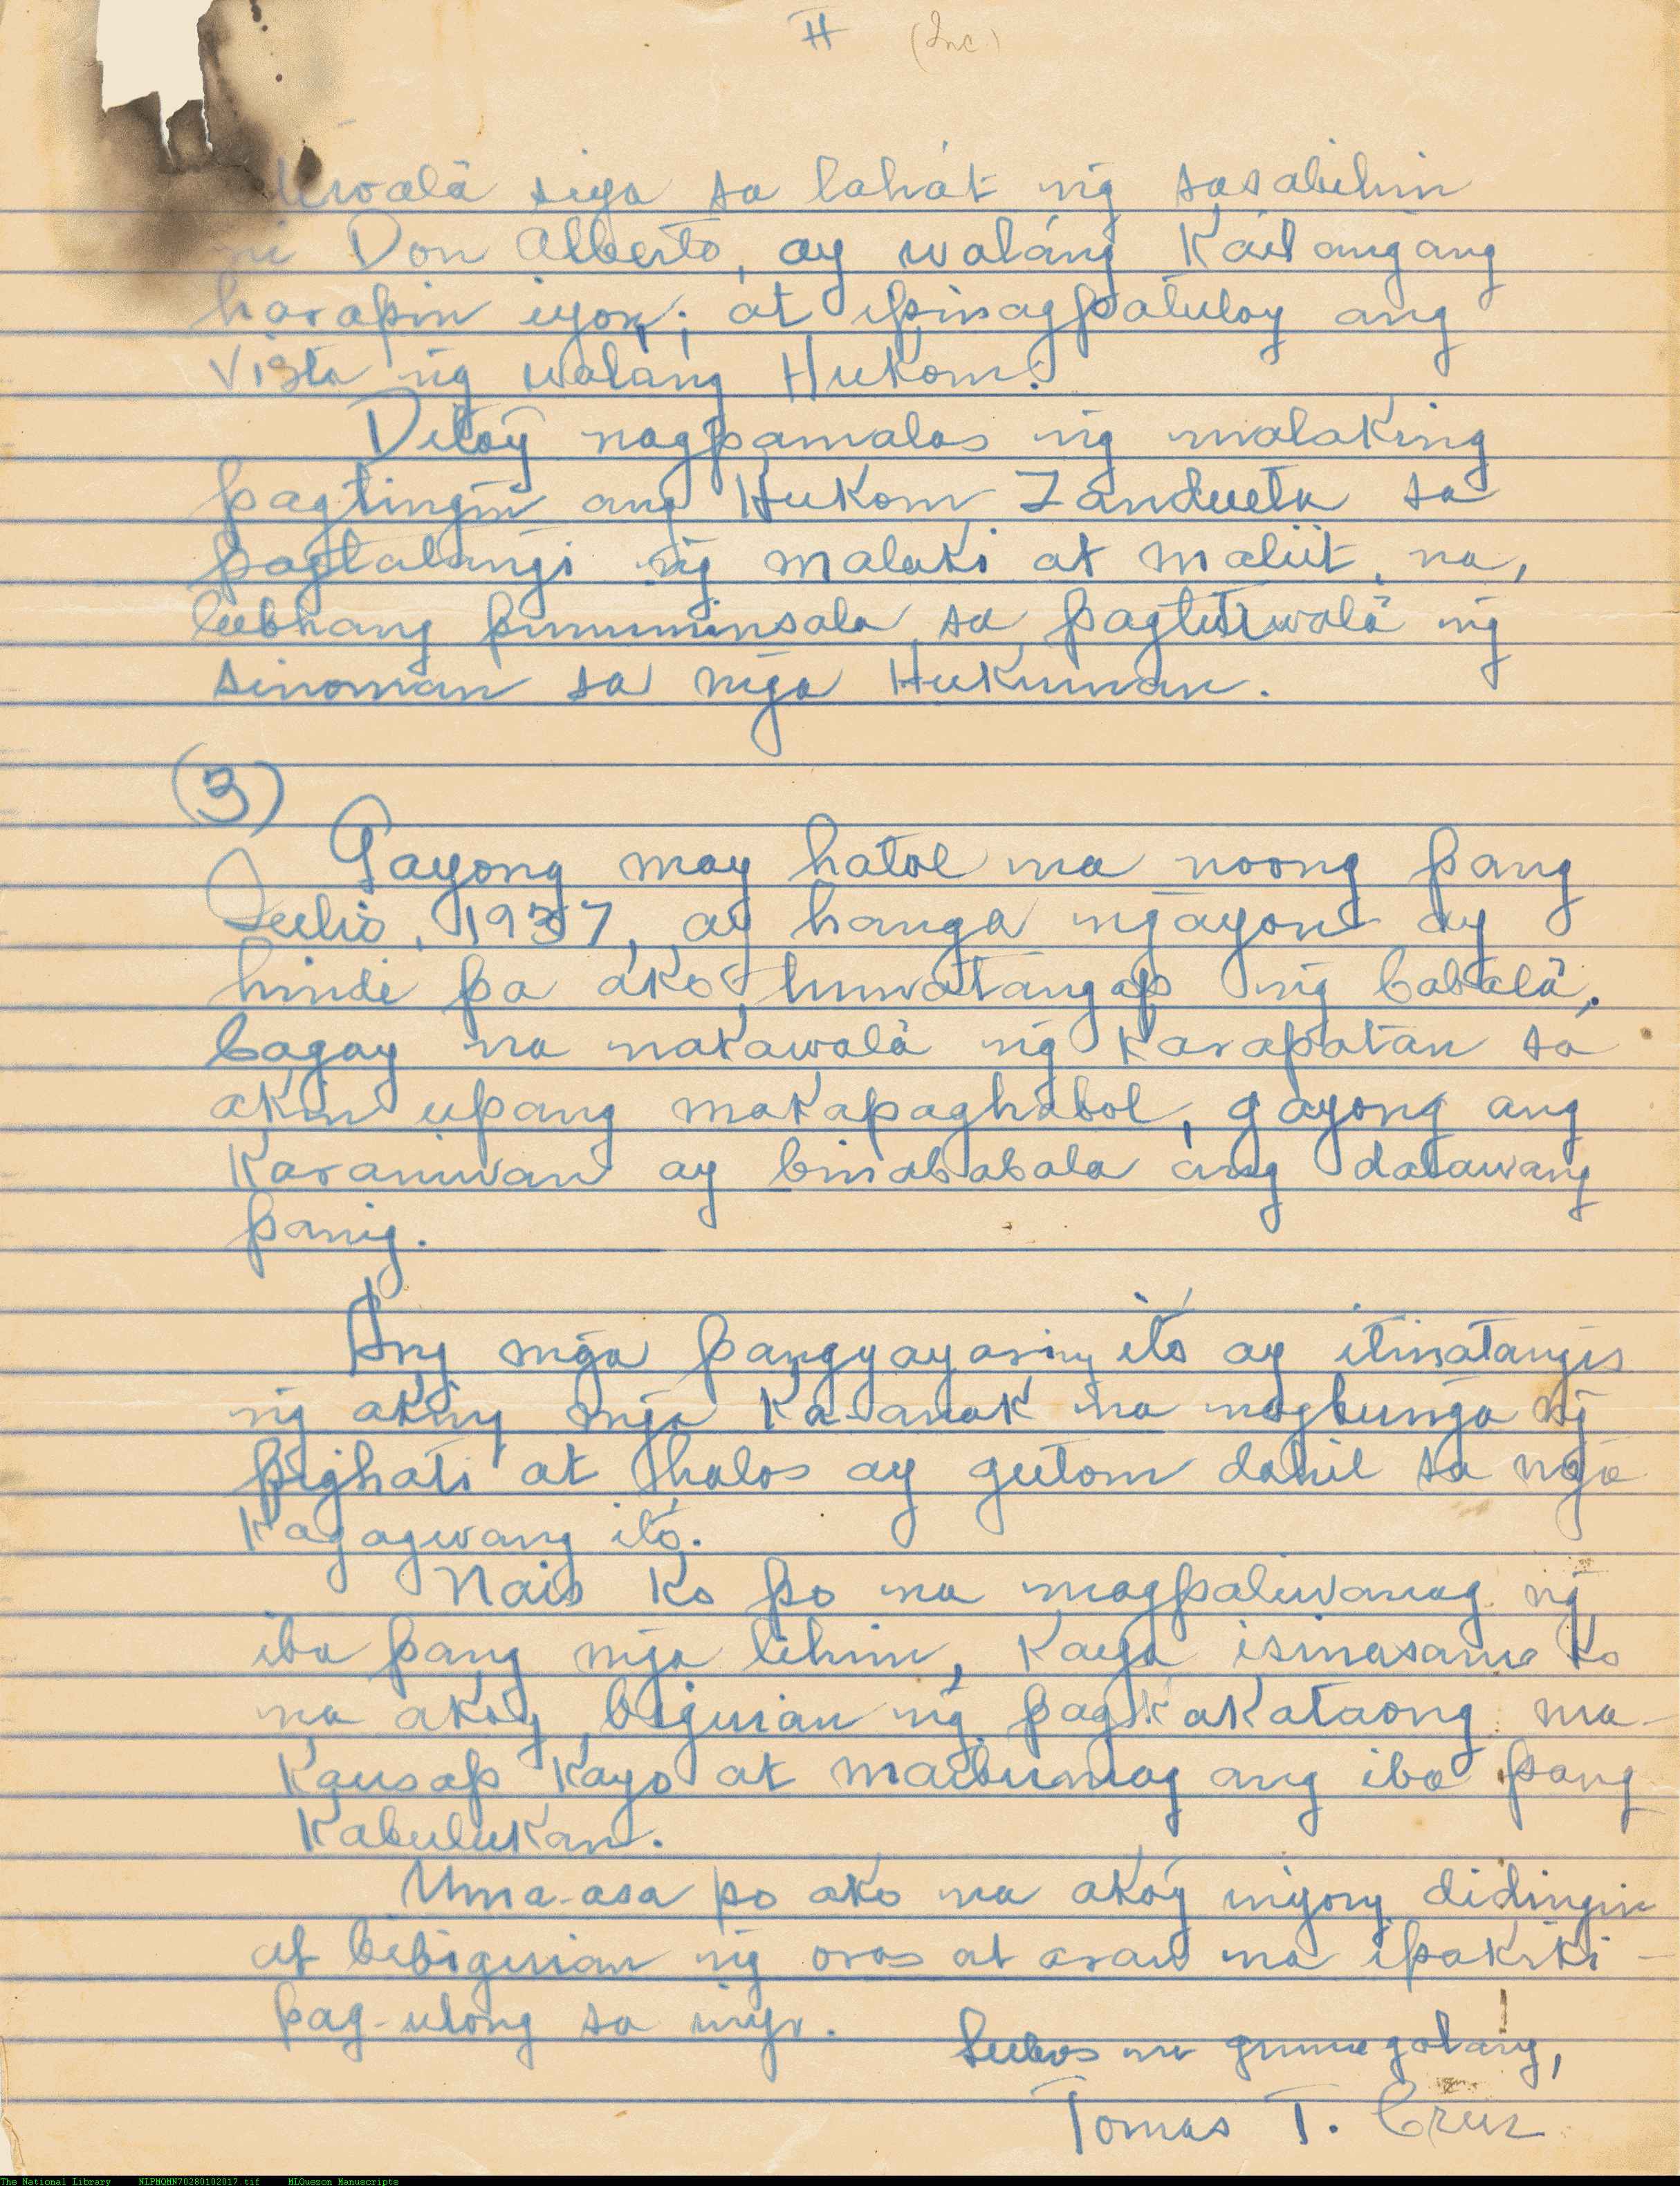 II (Inc)
tiwalà siya sa lahát ng sasabihin
ni Don Alberto, ay waláng Kailangang
harapin iyon; at ipinagpatuloy ang
Vista ng waláng Hukom.
Ditoy nagpamalas ng malaking
pagtingin ang Hukom Zandueta sa
pagtatangi ng malaki at maliit, na,
lubhang pumiminsala sa pagtitiwalà ng
sinoman sa mga Hukuman.
(3)
Gayong may hatol na noong pang
Julio, 1937, ay hanga ngayon ay
hindi pa ako tumatangap ng babalà,
bagay na nakawalà ng Karapatan sa
akin upang makapaghabol, gayong ang
Karaniwan ay binababala ang dalawang
panig.
Ang mga pangyayaring itó ay itinatangis
ng aking mga Ka-anak na nagbunga ng
pighati at halos ay gutom dahil sa mga
Kagagwang itó.
Nais Ko po na magpaliwanag ng
iba pang mga lihim, Kaya isinasamo Ko
na akóy bigyuian ng pagkakataong ma-
Kausap Kayo at maibunyag ang iba pang
Kabulukan.
Uma-asa po ako na akóy inyong didingin
at bibiguian ng oras at araw na ipakiki-
pag-ulong sa inyo.
Lubos na gumagalang,
Tomas T. Cruz
The National Library NLPMQMN70280102017.tif MLQuezon Manuscripts